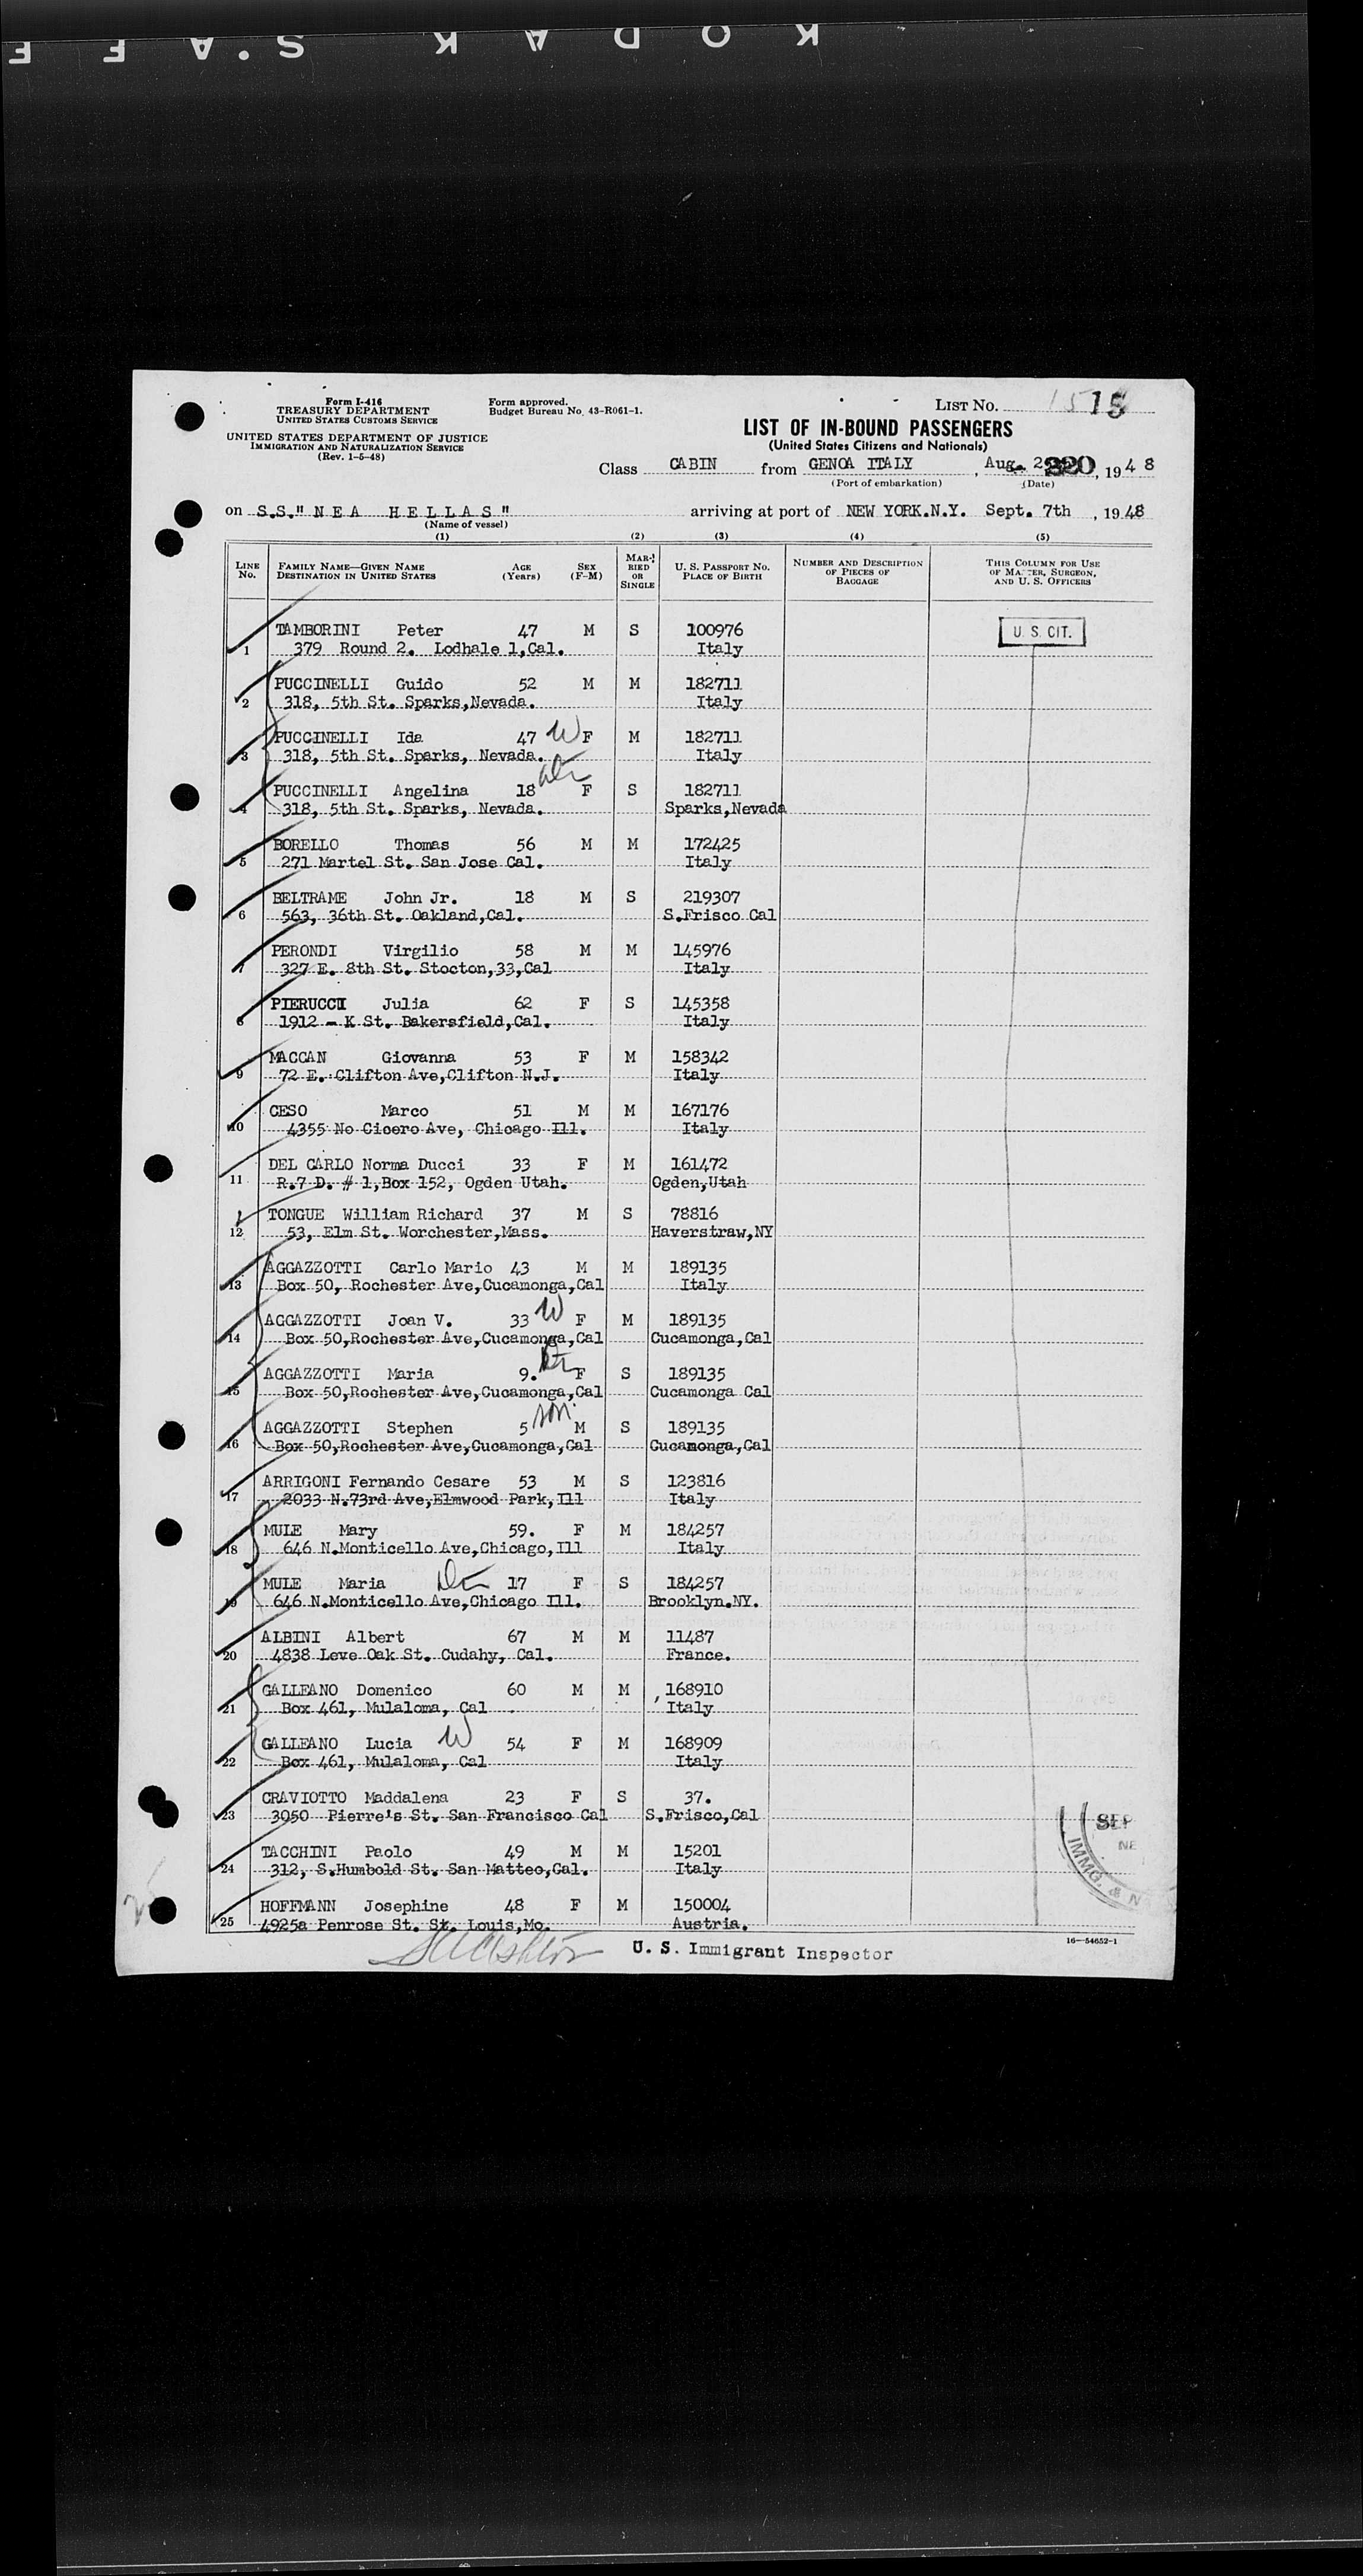 KODAK S.A F E
Form I-416
TREASURY DEPARTMENT
UNITED STATES CUSTOMS SERVICE
UNITED STATES DEPARTMENT OF JUSTICE
IMMIGRATION AND NATURALIZATION SERVICE
(Rev. 1-5-48)
Form approved.
Budget Bureau No. 43-R061-1.
LIST NO. 15
LIST OF IN-BOUND PASSENGERS
(United States Citizens and Nationals)
Class CABIN from GENOA ITALY, Aug. 1948
(Port of embarkation) (Date)
on S.S." N E A H E L L A S " arriving at port of NEW YORK.N.Y. Sept. 7th, 1948
(Name of vessel)
(1) (2) (3) (4) (5)
LINE NO. FAMILY NAME—GIVEN NAME DESTINATION IN UNITED STATES AGE (Years) SEX (F-M) MARRIED OR SINGLE U. S. PASSPORT NO. PLACE OF BIRTH NUMBER AND DESCRIPTION OF PIECES OF BAGGAGE THIS COLUMN FOR USE OF MASTER, SURGEON, AND U. S. OFFICERS
TAMBORINI Peter 47 M S 100976 U. S. CIT.
1 379 Round 2. Lodhale 1,Cal. Italy
PUCCINELLI Guido 52 M M 182711
2 318, 5th St. Sparks,Nevada. Italy
PUCCINELLI Ida 47 W F M 182711
3 318, 5th St. Sparks, Nevada. Italy
PUCCINELLI Angelina 18 Dtr F S 182711
4 318, 5th St. Sparks, Nevada. Sparks,Nevada
BORELLO Thomas 56 M M 172425
5 271 Martel St. San Jose Cal. Italy
BELTRAME John Jr. 18 M S 219307
6 563, 36th St. Oakland,Cal. S.Frisco Cal
PERONDI Virgilio 58 M M 145976
7 327 E. 8th St. Stocton,33,Cal Italy
PIERUCCI Julia 62 F S 145358
8 1912 - K St. Bakersfield,Cal. Italy
MACCAN Giovanna 53 F M 158342
9 72 E. Clifton Ave,Clifton N.J. Italy
CESO Marco 51 M M 167176
10 4355 No Cicero Ave, Chicago Ill. Italy
DEL CARLO Norma Ducci 33 F M 161472
11 R.7 D. # 1,Box 152, Ogden Utah. Ogden,Utah
TONGUE William Richard 37 M S 78816
12 53, Elm St. Worchester,Mass. Haverstraw,NY
AGGAZZOTTI Carlo Mario 43 M M 189135
13 Box 50, Rochester Ave,Cucamonga,Cal Italy
AGGAZZOTTI Joan V. 33 W F M 189135
14 Box 50,Rochester Ave,Cucamonga,Cal Cucamonga,Cal
AGGAZZOTTI Maria 9. Dtr F S 189135
15 Box 50,Rochester Ave,Cucamonga,Cal Cucamonga Cal
AGGAZZOTTI Stephen 5 son M S 189135
16 Box 50,Rochester Ave,Cucamonga,Cal Cucamonga,Cal
ARRIGONI Fernando Cesare 53 M S 123816
17 2033 N.73rd Ave,Elmwood Park,Ill Italy
MULE Mary 59. F M 184257
18 646 N.Monticello Ave,Chicago,Ill Italy
MULE Maria Dtr 17 F S 184257
19 646 N.Monticello Ave,Chicago Ill. Brooklyn.NY.
ALBINI Albert 67 M M 11487
20 4838 Leve Oak St. Cudahy, Cal. France.
GALLEANO Domenico 60 M M 168910
21 Box 461, Mulaloma, Cal Italy
GALLEANO Lucia W 54 F M 168909
22 Box 461, Mulaloma, Cal Italy
CRAVIOTTO Maddalena 23 F S 37.
23 3050 Pierre's St. San Francisco Cal S.Frisco,Cal
TACCHINI Paolo 49 M M 15201
24 312, S.Humbold St. San Matteo,Cal. Italy
HOFFMANN Josephine 48 F M 150004
25 4925a Penrose St. St. Louis,Mo. Austria.
SEP
NE
IMMG. & N
U. S. Immigrant Inspector
16—54652-1